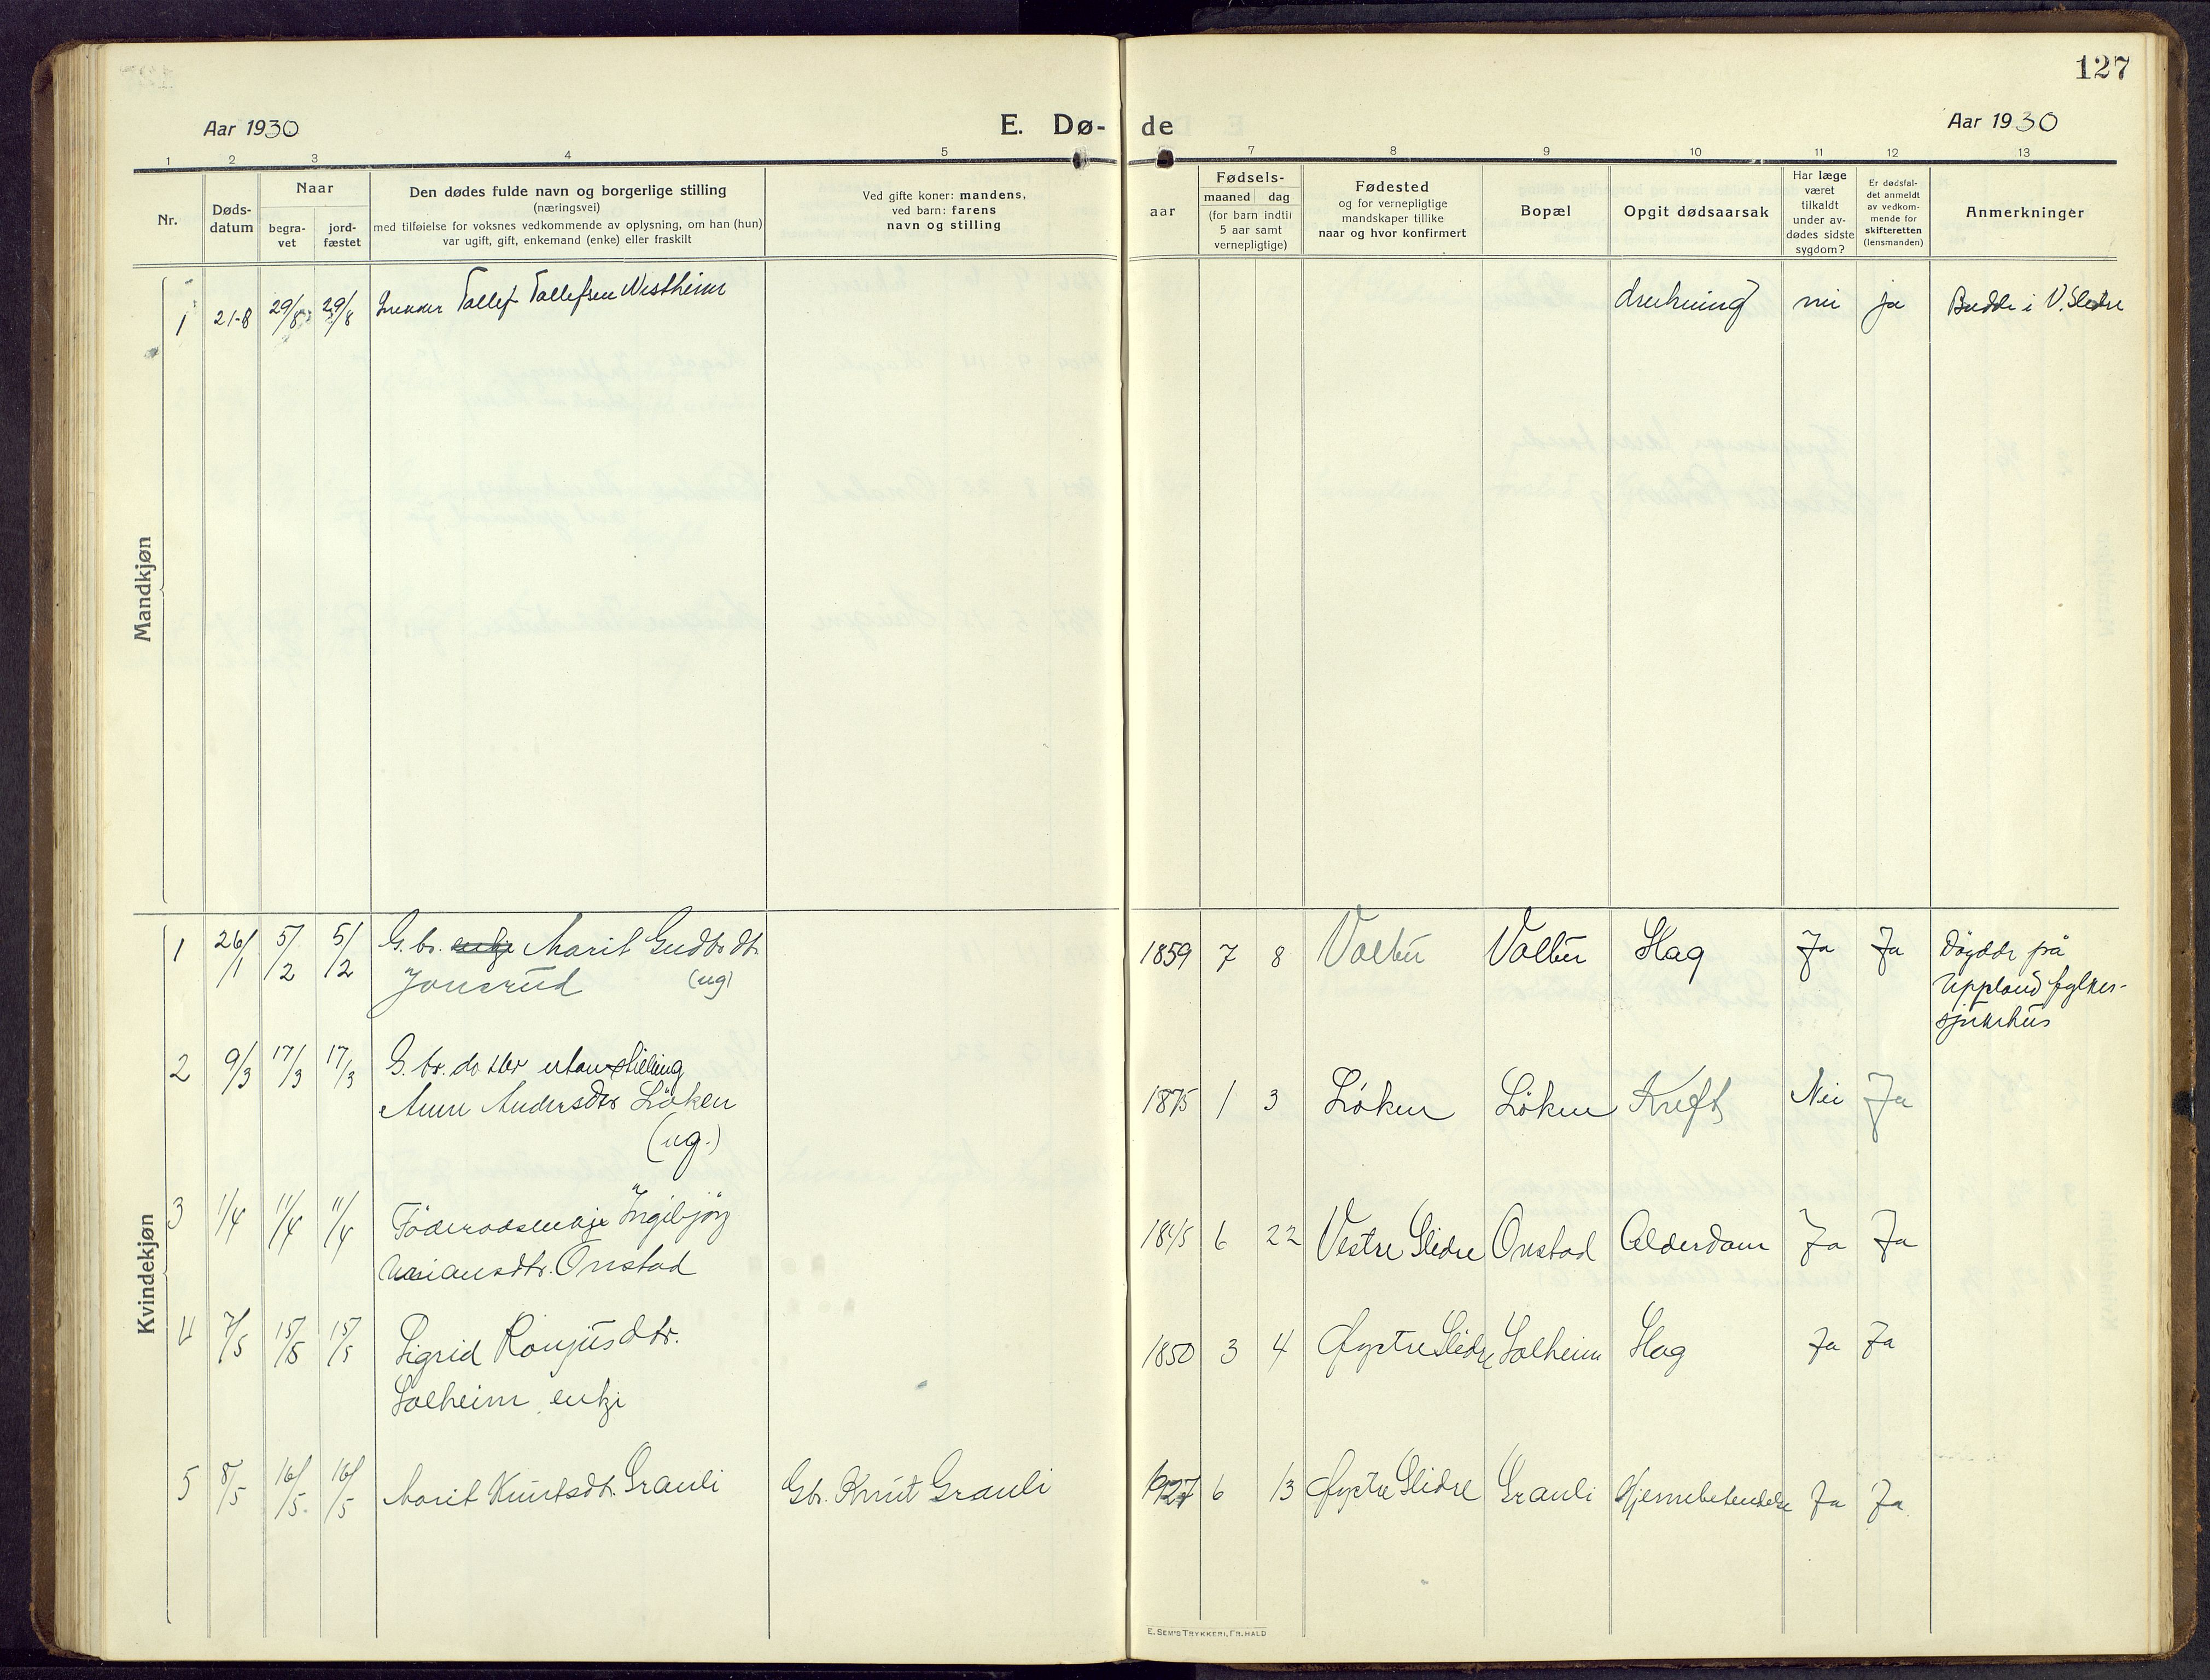 127
Aar 1930
E. Dø-
de
Aar 1930
1 2 3 4 5 7 8 9 10 11 12 13
Nr.
Døds-
datum
Naar
begra-
vet
jord-
fæstet
Den dødes fulde navn og borgerlige stilling
(næringsvei)
med tilføielse for voksnes vedkommende av oplysning, om han (hun)
var ugift, gift, enkemand (enke) eller fraskilt
Ved gifte koner: mandens,
ved barn: farens
navn og stilling
aar
Fødsels-
maaned dag
(for barn indtil
5 aar samt
vernepligtige)
Fødested
og for vernepligtige
mandskaper tillike
naar og hvor konfirmert
Bopæl
Opgit dødsaarsak
Har læge
været
tilkaldt
under av-
dødes sidste
sygdom?
Er dødsfal-
det anmeldt
av vedkom-
mende for
skifteretten
(lensmanden)
Anmerkninger
Mandkjøn
1 21-8 29/8 29/8 Tollef Tollefsen Westheim drukning nei ja Budde i V. Slidre
Kvindekjøn
1 26/1 5/2 5/2 G.br. enkje Marit Gudbr.dt. 1859 7 8 Volbu Volbu Slag Ja Ja Döydde på
Jonsrud (ug) Uppland fylkes-
sjukehus
2 9/3 17/3 17/3 G.br. dotter utan stilling
Anne Andersdtr Löken 1875 1 3 Löken Löken Kreft Nei Ja
(ug.)
3 1/4 11/4 11/4 Föderaadsenkje Ingibjörg 1845 6 22 Vestre Slidre Onstad Alderdom Ja Ja
Onstad
4 7/5 15/5 15/5 Sigrid Ronjusdtr. 1850 3 4 Øystre Slidre Solheim Slag Ja Ja
Solheim enkje
5 8/5 16/5 16/5 Marit Knutsdt. Granli Gbr. Knut Granli 1927 6 13 Øystre Slidre Granli Hjernebetendelse Ja Ja
E. SEM'S TRYKKERI, FR. HALD